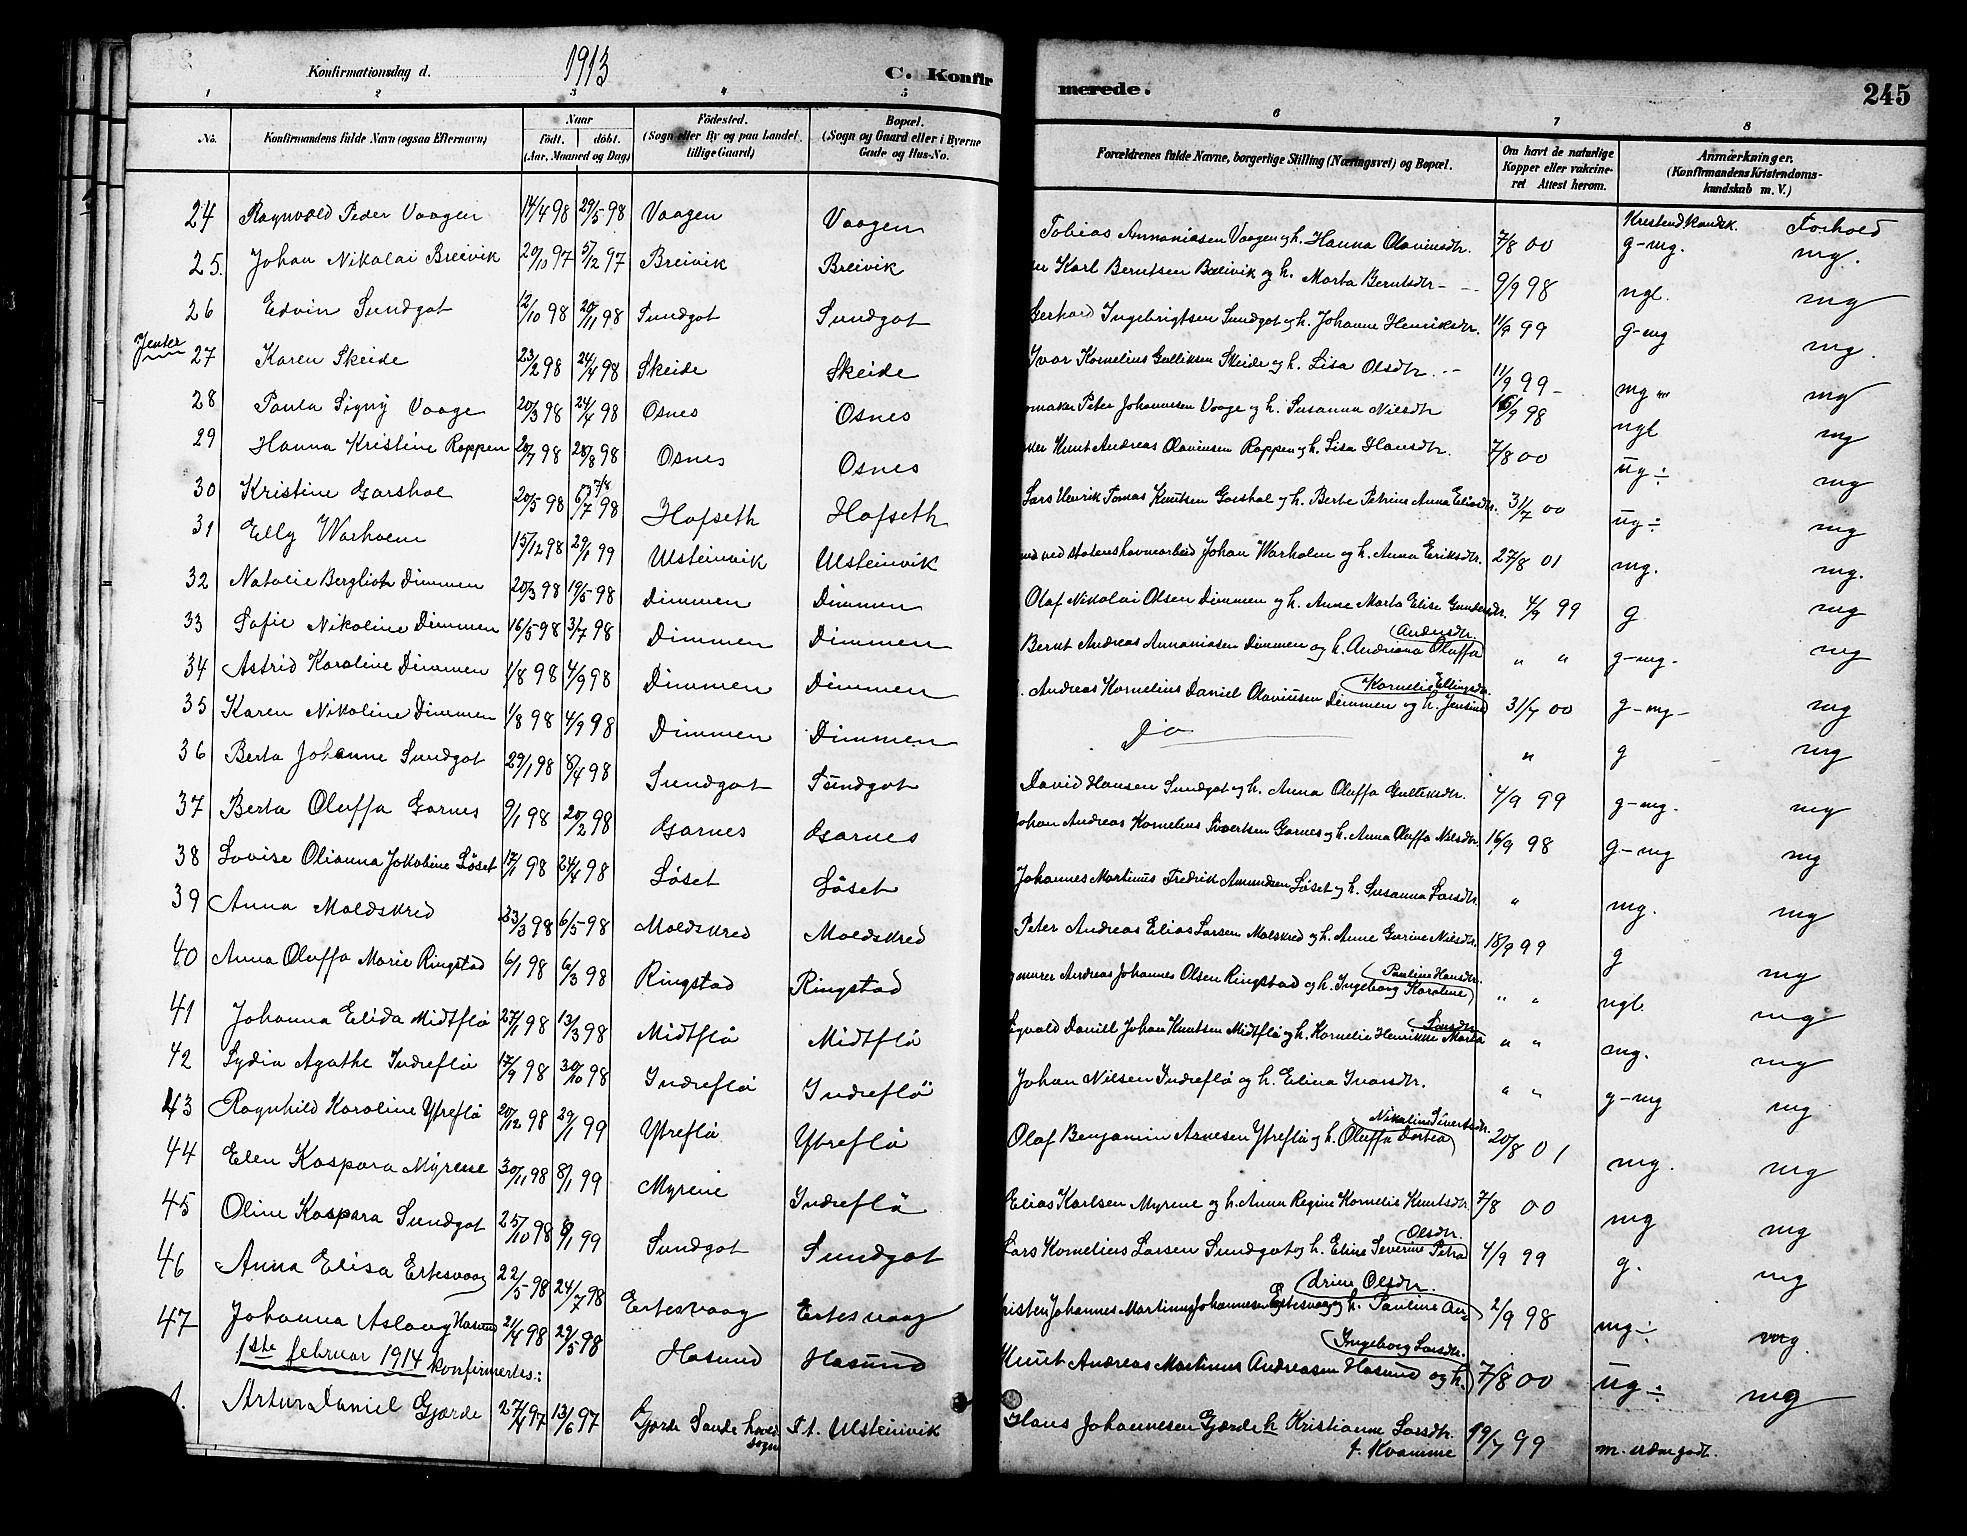 Konfirmationsdag d. 1913 C. Konfirmerede. 245
1 2 3 4 5 6 7 8
No. Konfirmandens fulde Navn (ogsaa Efternavn) Naar født. døbt. (Aar, Maaned og Dag) Fødested. (Sogn eller By og paa Landet tillige Gaard) Bopæl. (Sogn og Gaard eller i Byerne Gade og Hus-No. Forældrenes fulde Navne, borgerlige Stilling (Næringsvei) og Bopæl. Om havt de naturlige Kopper eller vakcineret Attest herom. Anmærkninger. (Konfirmandens Kristendomskundskab m. V.)
Kristendkundsk. Forhold
24 Ragnvald Peder Vaagen 14/4 98 29/5 98 Vaagen Vaagen Tobias Annaniasen Vaagen og h. Hanna Olavinsdtr. 7/8 00 g-mg. mg.
25. Johan Nikolai Breivik 20/10 97 5/12 97 Breivik Breivik Karl Berntsen Breivik og h. Marta Berntsdtr 9/9 98 ngl. mg
26 Edvin Sundgot 12/10 98 20/11 98 Sundgot Sundgot Gerhard Ingebrigtsen Sundgot og h. Johanne Henriksdtr. 11/9 99 g-mg mg.
Jenter
27 Karen Skeide 23/2 98 24/4 98 Skeide Skeide Ivar Kornelius Gulliksen Skeide og h. Lisa Olsdtr. 11/9 99 mg mg
28 Paula Signy Vaage 20/3 98 24/4 98 Osnes Osnes Peter Johannesen Vaage og h. Susanna Nilsdtr 16/9 98 ngl mg
29 Hanna Kristine Roppen 20/7 98 28/8 98 Osnes Osnes Knut Andreas Olavinsen Roppen og h. Lisa Hansdtr. 7/8 00 ug÷ mg
30 Kristine Garshol 20/5 98 /7 98 Hofseth Hofseth Lars Henrik Tomas Knutsen Garshol og h. Berte Petrine Anna Eliasdtr. 31/7 00 ug÷ mg
31 Elly Warholm 15/12 98 29/1 99 Ulsteinvik Ulsteinvik ved statens havnearbeid Johan Warholm og h. Anna Eriksdtr. 27/8 01 mg. mg.
32 Natalie Bergliot Dimmen 20/3 98 19/5 98 Dimmen Dimmen Olaf Nikolai Olsen Dimmen og h. Anne Marta Elise Gundersdtr. 4/9 99 g mg
33 Sofie Nikoline Dimmen 16/5 98 3/7 98 Dimmen Dimmen Bernt Andreas Annaniasen Dimmen og h. Andriana Oluffa Andersdtr. " " g-mg. mg
34 Astrid Karoline Dimmen 1/8 98 4/9 98 Dimmen Dimmen Andreas Kornelius Daniel Olavinsen Dimmen og h. Jensine Kornelie Ellingsdtr. 31/7 00 g-mg- mg
35 Karen Nikoline Dimmen 1/8 98 4/9 98 Dimmen Dimmen Do " g mg
36 Berta Johanne Sundgot 29/1 98 8/4 98 Sundgot Sundgot David Hansen Sundgot og h. Anna Oluffa Gulliksdtr. 4/9 99 g-mg. mg
37 Berta Oluffa Garnes 9/1 98 20/2 98 Garnes Garnes Johan Andreas Kornelius Sivertsen Garnes og h. Anna Oluffa Nilsdtr. 16/9 98 g-mg mg
38 Lovise Olianna Jakobine Løset 17/1 98 24/4 98 Løset Løset Johannes Martinus Fredrik Amundsen Løset og h. Susanna Larsdtr. " mg. mg
39 Anna Moldskred 23/3 98 6/5 98 Moldskred Moldskred Peter Andreas Elias Larsen Molskred og h. Anne Gurine Nilsdtr. 18/9 99 g mg
40 Anna Oluffa Marie Ringstad 6/1 98 6/3 98 Ringstad Ringstad Andreas Johannes Olsen Ringstad og h. Ingeborg Karoline Pauline Hansdtr. " " ngl. mg
41 Johanna Elida Midtflø 27/1 98 13/3 98 Midtflø Midtflø Sigvald Daniel Johan Knutsen Midtflø og h. Kornelie Henrikke Marta Larsdtr " " mg. mg
42 Lydia Agathe Indreflø 17/9 98 30/10 98 Indreflø Indreflø Johan Nilsen Indreflø og h. Elina Ivarsdtr. " " g-mg mg
43 Ragnhild Karoline Ytreflø 20/12 98 29/1 99 Ytreflø Ytreflø Olaf Benjamin Arnesen Ytreflø og h. Oluffa Dortea Nikoline Sivertsdtr. 20/8 01 mg. mg
44 Elen Kaspara Myrene 30/11 98 8/1 99 Myrene Indreflø Elias Karlsen Myrene og h. Anna Regine Kornelie Knutsdtr. 7/8 00 mg mg
45 Oline Kaspara Sundgot 25/10 98 8/1 99 Sundgot Sundgot Lars Kornelius Larsen Sundgot og h. Eline Severine Petra Olsdtr. 4/9 99 g. mg
46 Anna Elisa Ertesvaag 22/5 98 24/7 98 Ertesvaag Ertesvaag Kristen Johannes Martinus Johannesen Ertesvaag og h. Pauline Andrine Olsdtr. 2/9 98 mg÷ mg.
47 Johanna Aslaug Hasund 21/4 98 29/5 98 Hasund Hasund Knut Andreas Martinus Andreasen Hasund og h. Ingeborg Larsdtr. 7/8 00 ug÷ mg
1ste februar 1914 konfirmertes:
1. Artur Daniel Gjærde 27/4 97 13/6 97 Gjerde Sande hovedsogn F. t. Ulsteinvik Hans Johannesen Gjærde h Kristianne Larsdtr. f. Kvamme 19/7 99 m. edm godt.